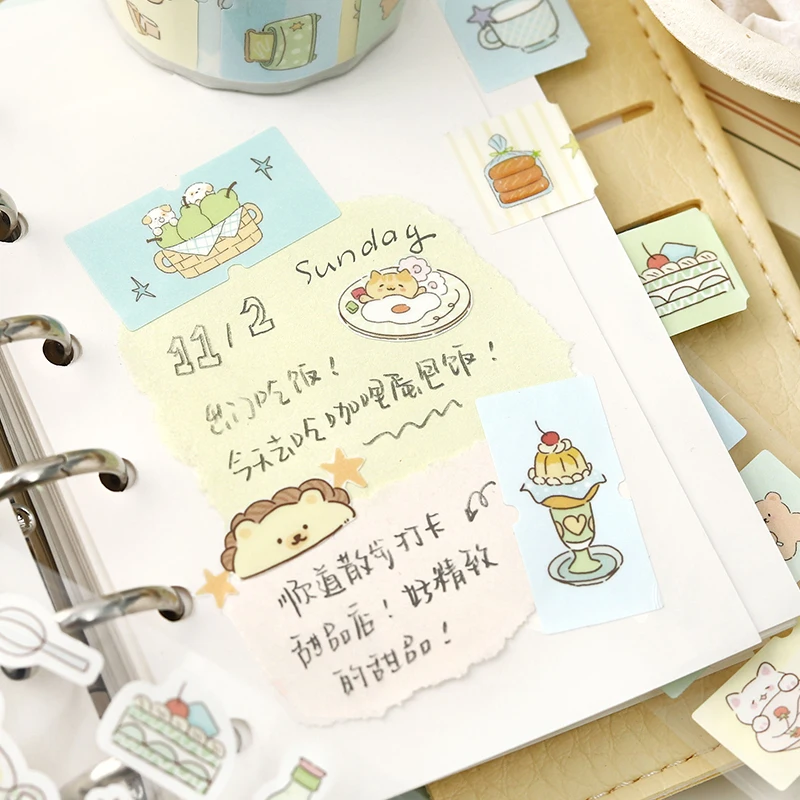 Sunday
11/2
出门吃饭！
今天去吃咖哩蛋包饭！
顺道散步打卡
甜品店！好精致
的甜品！